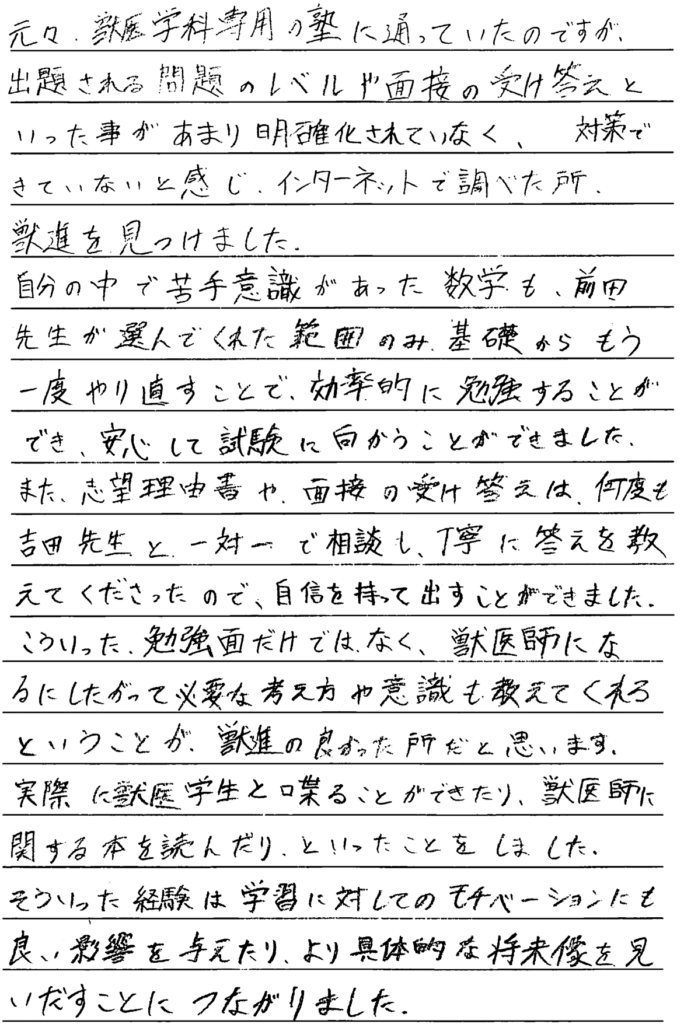 元々、獣医学科専用の塾に通っていたのですが、
出題される問題のレベルや面接の受け答えと
いった事があまり明確化されていなく、対策で
きていないと感じ、インターネットで調べた所、
獣進を見つけました。
自分の中で苦手意識があった数学も、前田
先生が選んでくれた範囲のみ、基礎からもう
一度やり直すことで、効率的に勉強することが
でき、安心して試験に向かうことができました。
また、志望理由書や、面接の受け答えは、何度も
吉田先生と一対一で相談し、丁寧に答えを教
えてくださったので、自信を持って出すことができました。
こういった、勉強面だけではなく、獣医師にな
るにしたがって必要な考え方や意識も教えてくれる
ということが、獣進の良かった所だと思います。
実際に獣医学生と喋ることができたり、獣医師に
関する本を読んだり、といったことをしました。
そういった経験は学習に対してのモチベーションにも
良い影響を与えたり、より具体的な将来像を見
いだすことにつながりました。